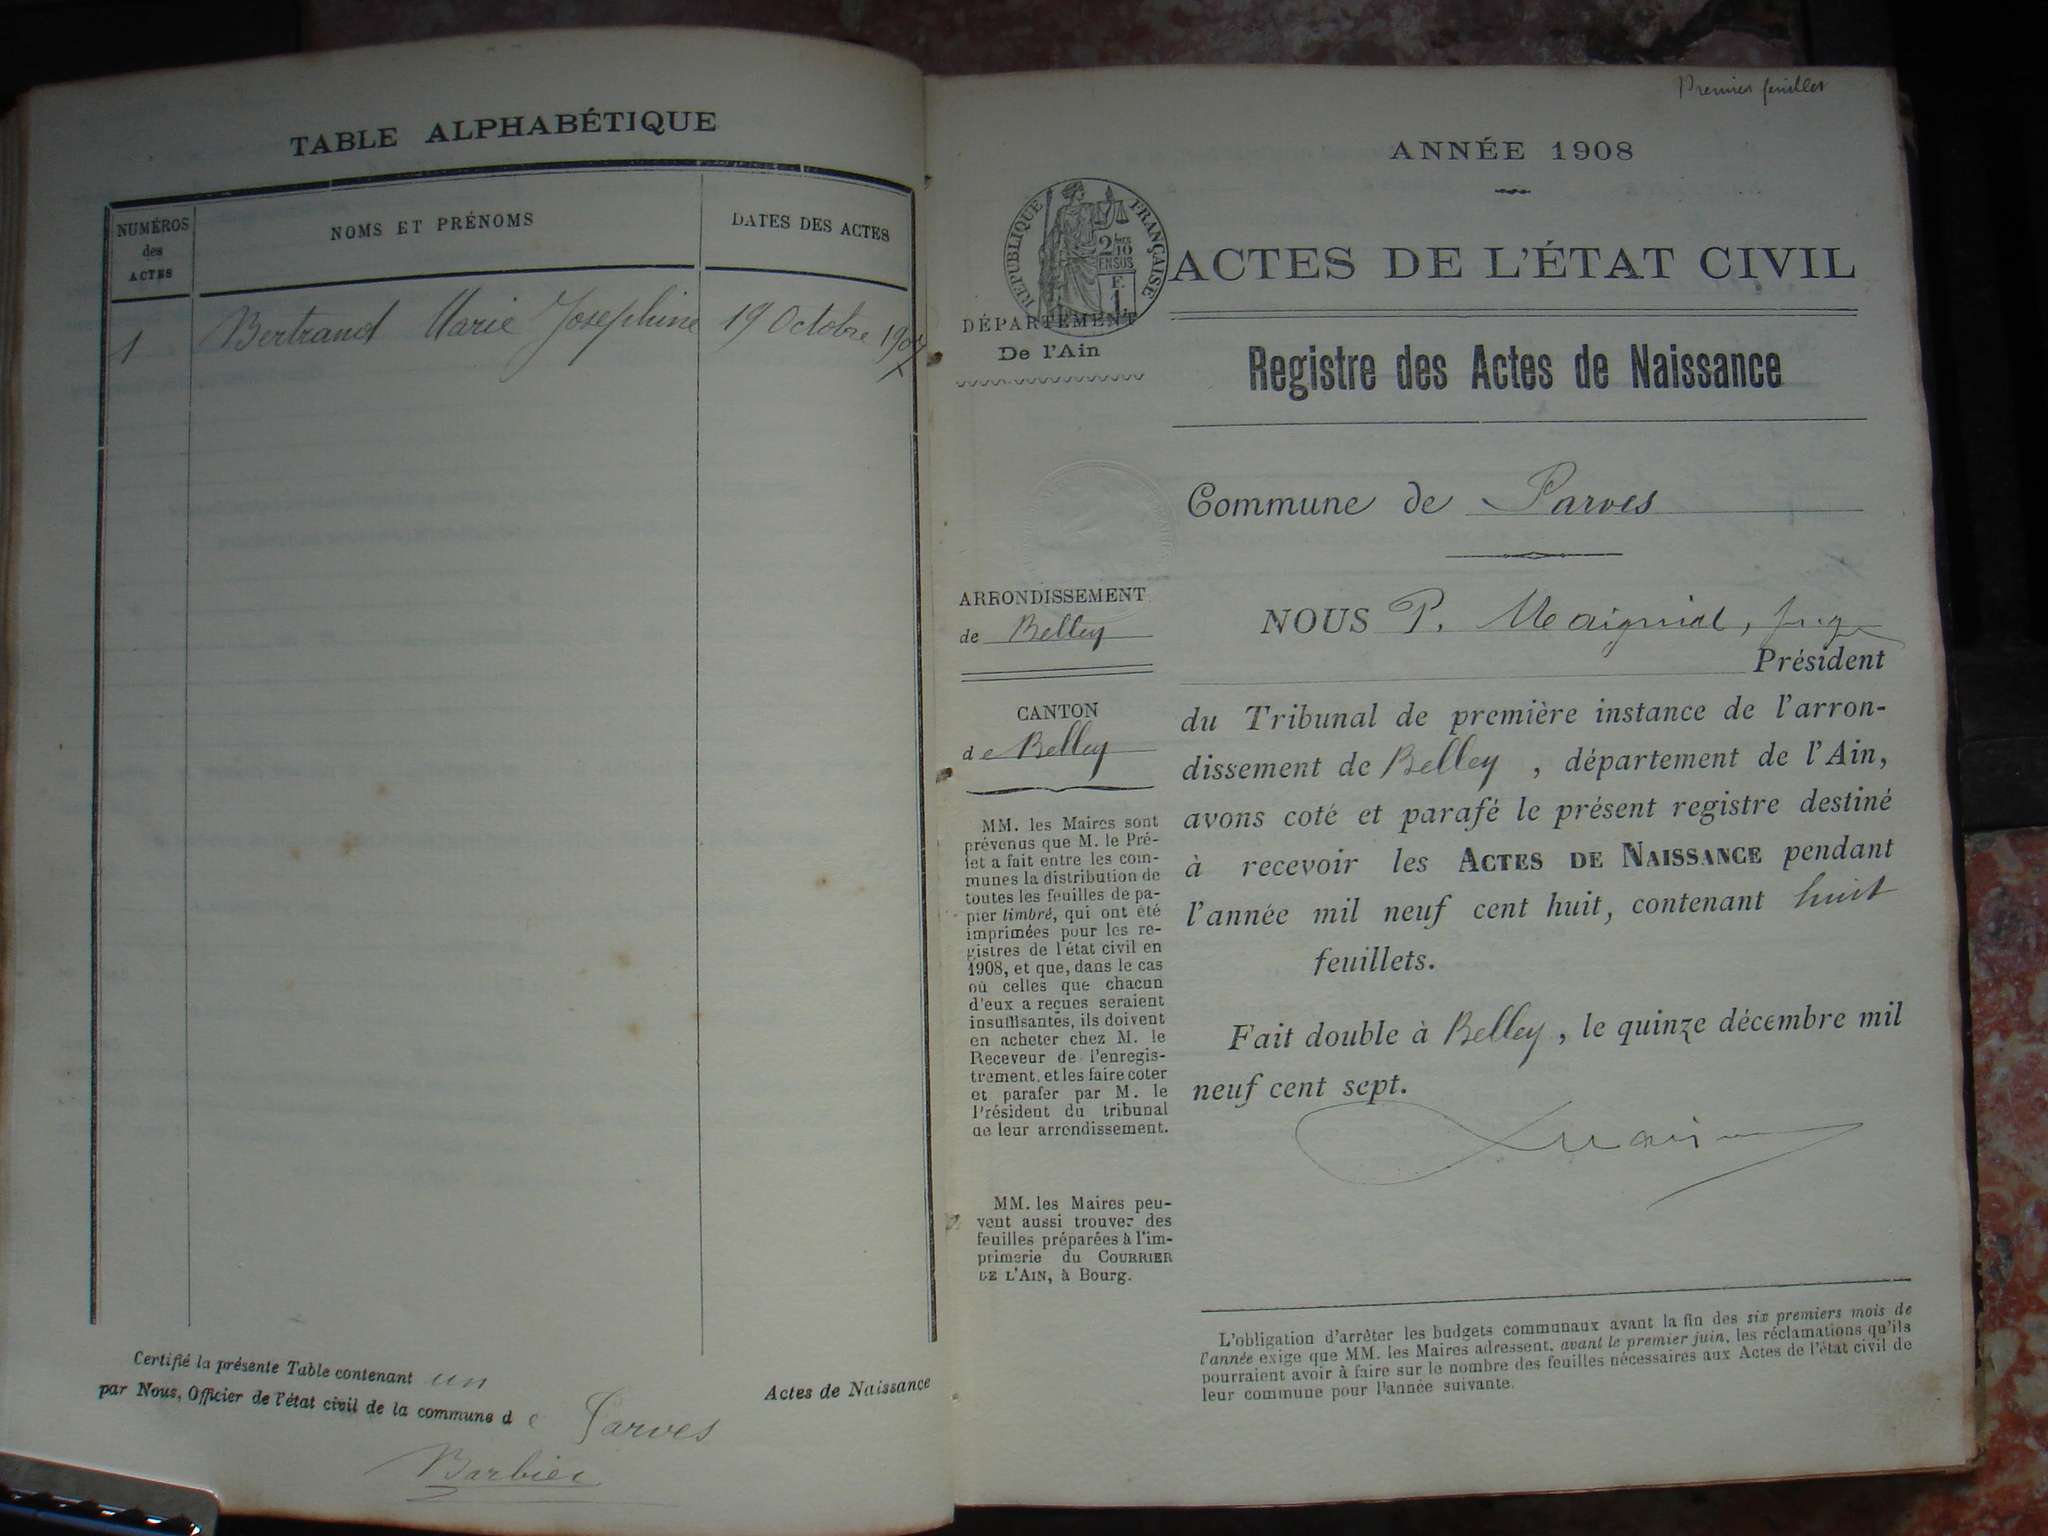 TABLE ALPHABÉTIQUE
NUMÉROS
des
ACTES
NOMS ET PRÉNOMS
DATES DES ACTES
1
Bertrand Marie Josephine
19 Octobre 1907
Certifié la présente Table contenant un
Actes de Naissance
par Nous, Officier de l'état civil de la commune de Parves
Barbier
Premier feuillet
ANNÉE 1908
RÉPUBLIQUE FRANÇAISE
2 10
EN SUS
F.
1
ACTES DE L'ÉTAT CIVIL
DÉPARTEMENT
De l'Ain
Registre des Actes de Naissance
Commune de Parves
ARRONDISSEMENT
de Belley
CANTON
de Belley
MM. les Maires sont
prévenus que M. le Pré-
fet a fait entre les com-
munes la distribution de
toutes les feuilles de pa-
pier timbré, qui ont été
imprimées pour les re-
gistres de l'état civil en
1908, et que, dans le cas
où celles que chacun
d'eux a reçues seraient
insuffisantes, ils doivent
en acheter chez M. le
Receveur de l'enregis-
trement, et les faire coter
et parafer par M. le
Président du tribunal
de leur arrondissement.
MM. les Maires peu-
vent aussi trouver des
feuilles préparées à l'im-
primerie du COURRIER
DE L'AIN, à Bourg.
NOUS P. juge
Président
du Tribunal de première instance de l'arron-
dissement de Belley, département de l'Ain,
avons coté et parafé le présent registre destiné
à recevoir les ACTES DE NAISSANCE pendant
l'année mil neuf cent huit, contenant huit
feuillets.
Fait double à Belley, le quinze décembre mil
neuf cent sept.
L'obligation d'arrêter les budgets communaux avant la fin des six premiers mois de
l'année exige que MM. les Maires adressent, avant le premier juin, les réclamations qu'ils
pourraient avoir à faire sur le nombre des feuilles nécessaires aux Actes de l'état civil de
leur commune pour l'année suivante.